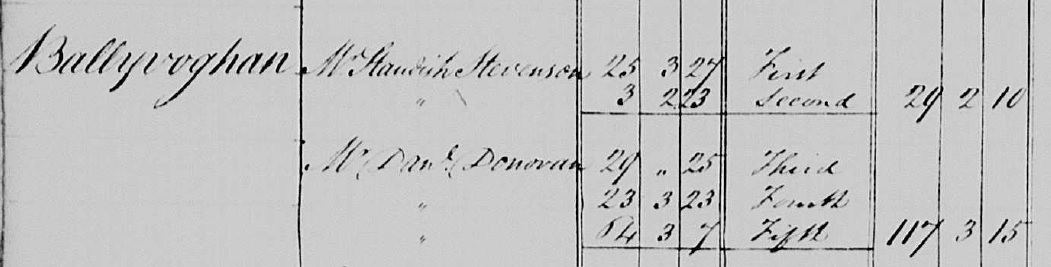 Ballyvoghan Mr Standish Stevenson 25 3 27 First
" 3 2 23 Second 29 2 10
Mr Danl. Donovan 29 " 25 Third
" 23 3 23 Fourth
" 64 3 7 Fifth 117 3 15